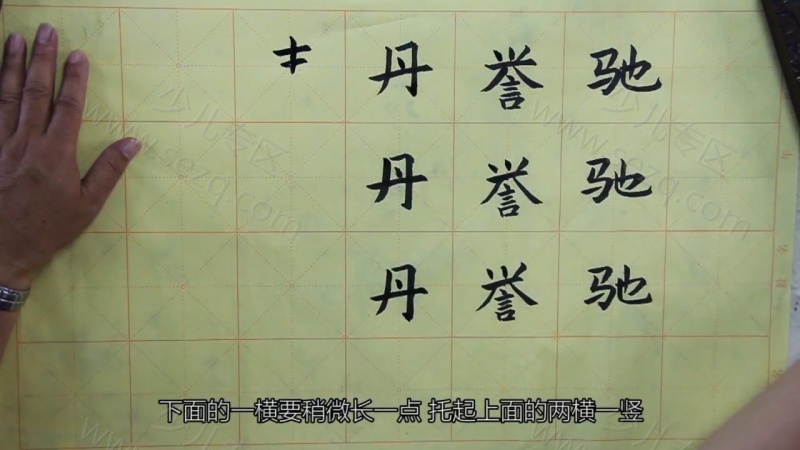 驰 誉 丹
驰 誉 丹
驰 誉 丹
少儿专区
www.sezq.com
少儿专区
www.sezq.com
下面的一横要稍微长一点 托起上面的两横一竖